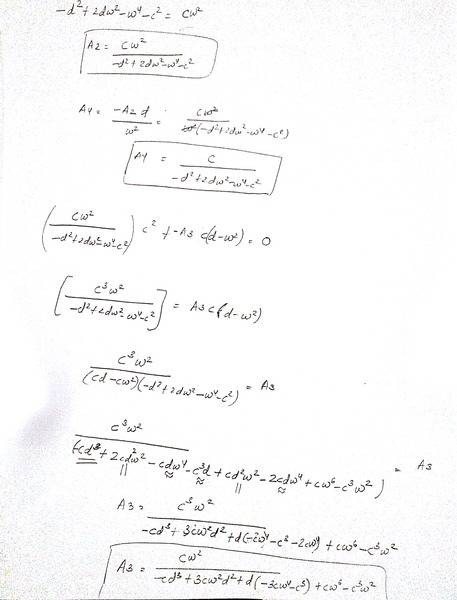 -d²+2dω²-ω⁴-c² = cω²
A2 = cω² / (-d²+2dω²-ω⁴-c²)
A4 = -A2 d / ω² = cω² / (ω²(-d²+2dω²-ω⁴-c²))
A4 = c / (-d²+2dω²-ω⁴-c²)
(cω² / (-d²+2dω²-ω⁴-c²)) c² + -A3 c(d-ω²) = 0
[c³ω² / (-d²+2dω²-ω⁴-c²)] = A3 c(d-ω²)
c³ω² / ((cd-cω²)(-d²+2dω²-ω⁴-c²)) = A3
c³ω² / (-cd³+2cd²ω²-cdω⁴-c³d+cd²ω²-2cdω⁴+cω⁶-c³ω²) = A3
A3 = c³ω² / (-cd³+3cω²d²+d(-cω⁴-c³-2cω⁴)+cω⁶-c³ω²)
A3 = cω² / (-cd³+3cω²d²+d(-3cω⁴-c³)+cω⁶-c³ω²)